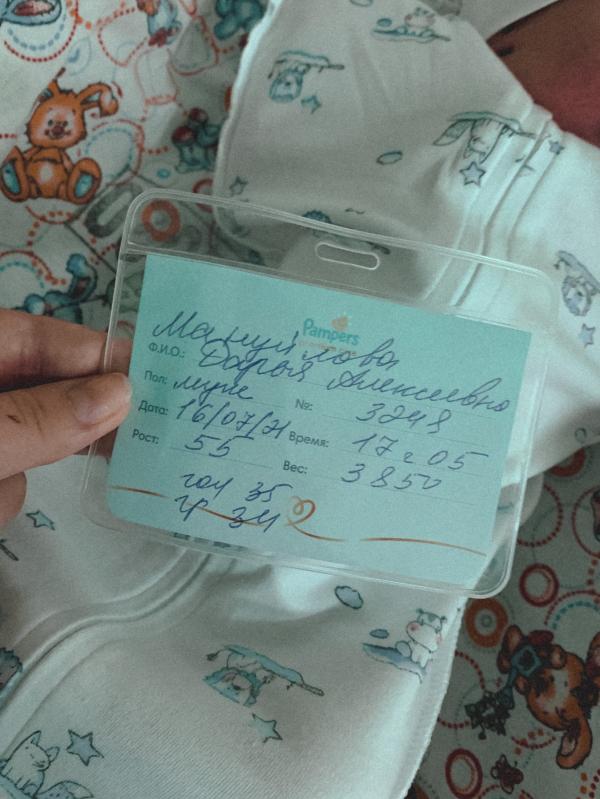 Pampers
Мануйлова
Ф.И.О.: Дарья Алексеевна
Пол: муж №: 3248
Дата: 16/07/21 Время: 17 ч 05
Рост: 55 Вес: 3850
гол 35
гр 34